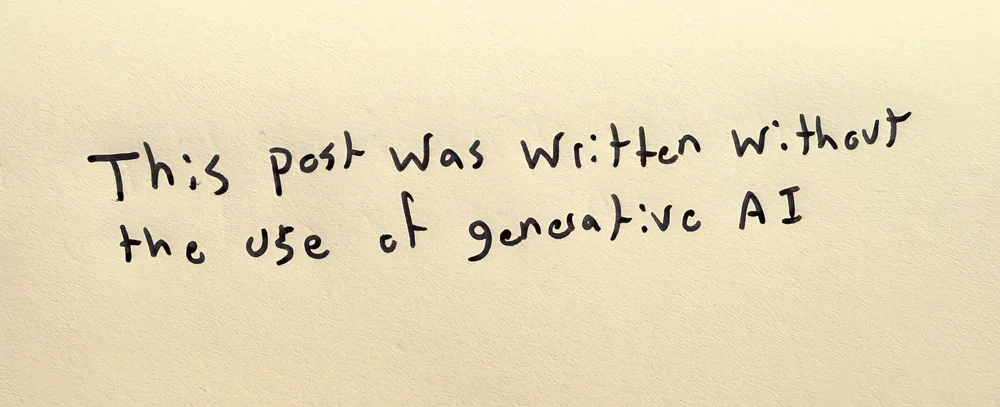 This post was written without
the use of generative AI